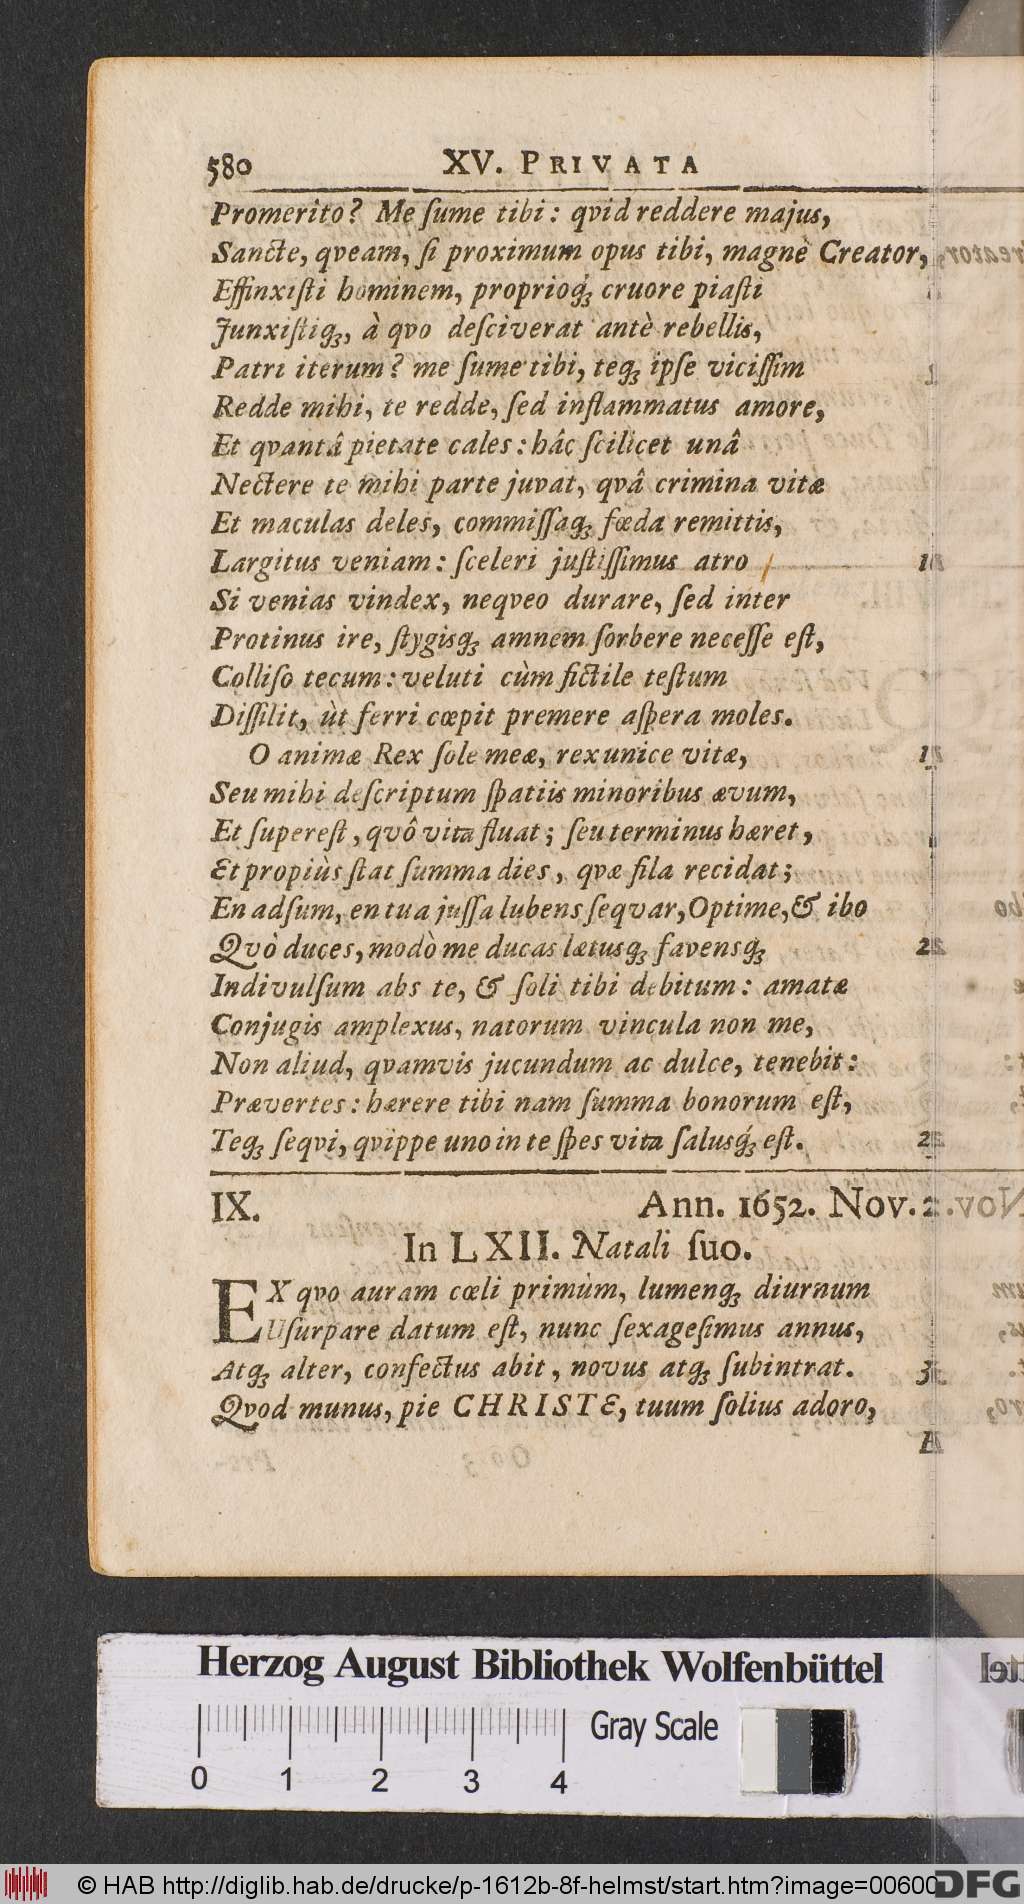 580 XV. PRIVATA
Promerito? Me ſume tibi: qvid reddere majus,
Sancte, qveam, ſi proximum opus tibi, magne Creator,
Effinxiſti hominem, proprioq́ꝫ cruore piaſti
Junxiſtiqꝫ, à qvo deſciverat antè rebellis,
Patri iterum? me ſume tibi, teqꝫ ipſe viciſſim
Redde mihi, te redde, ſed inflammatus amore,
Et qvantâ pietate cales: hâc ſcilicet unâ
Nectere te mihi parte juvat, qvâ crimina vitæ
Et maculas deles, commiſſaqꝫ fœda remittis,
Largitus veniam: ſceleri juſtiſſimus atro 10
Si venias vindex, neqveo durare, ſed inter
Protinus ire, ſtygisqꝫ amnem ſorbere neceſſe eſt,
Colliſo tecum: veluti cùm fictile teſtum
Diſſilit, ùt ferri cœpit premere aſpera moles.
O animæ Rex ſole meæ, rex unice vitæ, 15
Seu mihi deſcriptum ſpatiis minoribus ævum,
Et ſupereſt, qvô vita fluat; ſeu terminus hæret,
Et propiùs ſtat ſumma dies, qvæ fila recidat;
En adſum, en tua juſſa lubens ſeqvar, Optime, & ibo
Qvò duces, modò me ducas lætusqꝫ favensqꝫ
Indivulſum abs te, & ſoli tibi debitum: amatæ
Conjugis amplexus, natorum vincula non me,
Non aliud, qvamvis jucundum ac dulce, tenebit:
Prævertes: hærere tibi nam ſumma bonorum eſt,
Teqꝫ ſeqvi, qvippe uno in te ſpes vita ſalusq́ꝫ eſt.
IX. Ann. 1652. Nov. 2.
In LXII. Natali ſuo.
EX qvo auram cœli primùm, lumenqꝫ diurnum
Uſurpare datum eſt, nunc ſexageſimus annus,
Atqꝫ alter, confectus abit, novus atqꝫ ſubintrat.
Qvod munus, pie CHRISTE, tuum ſolius adoro,
Herzog August Bibliothek Wolfenbüttel
Gray Scale
0 1 2 3 4
© HAB http://diglib.hab.de/drucke/p-1612b-8f-helmst/start.htm?image=00600
DFG